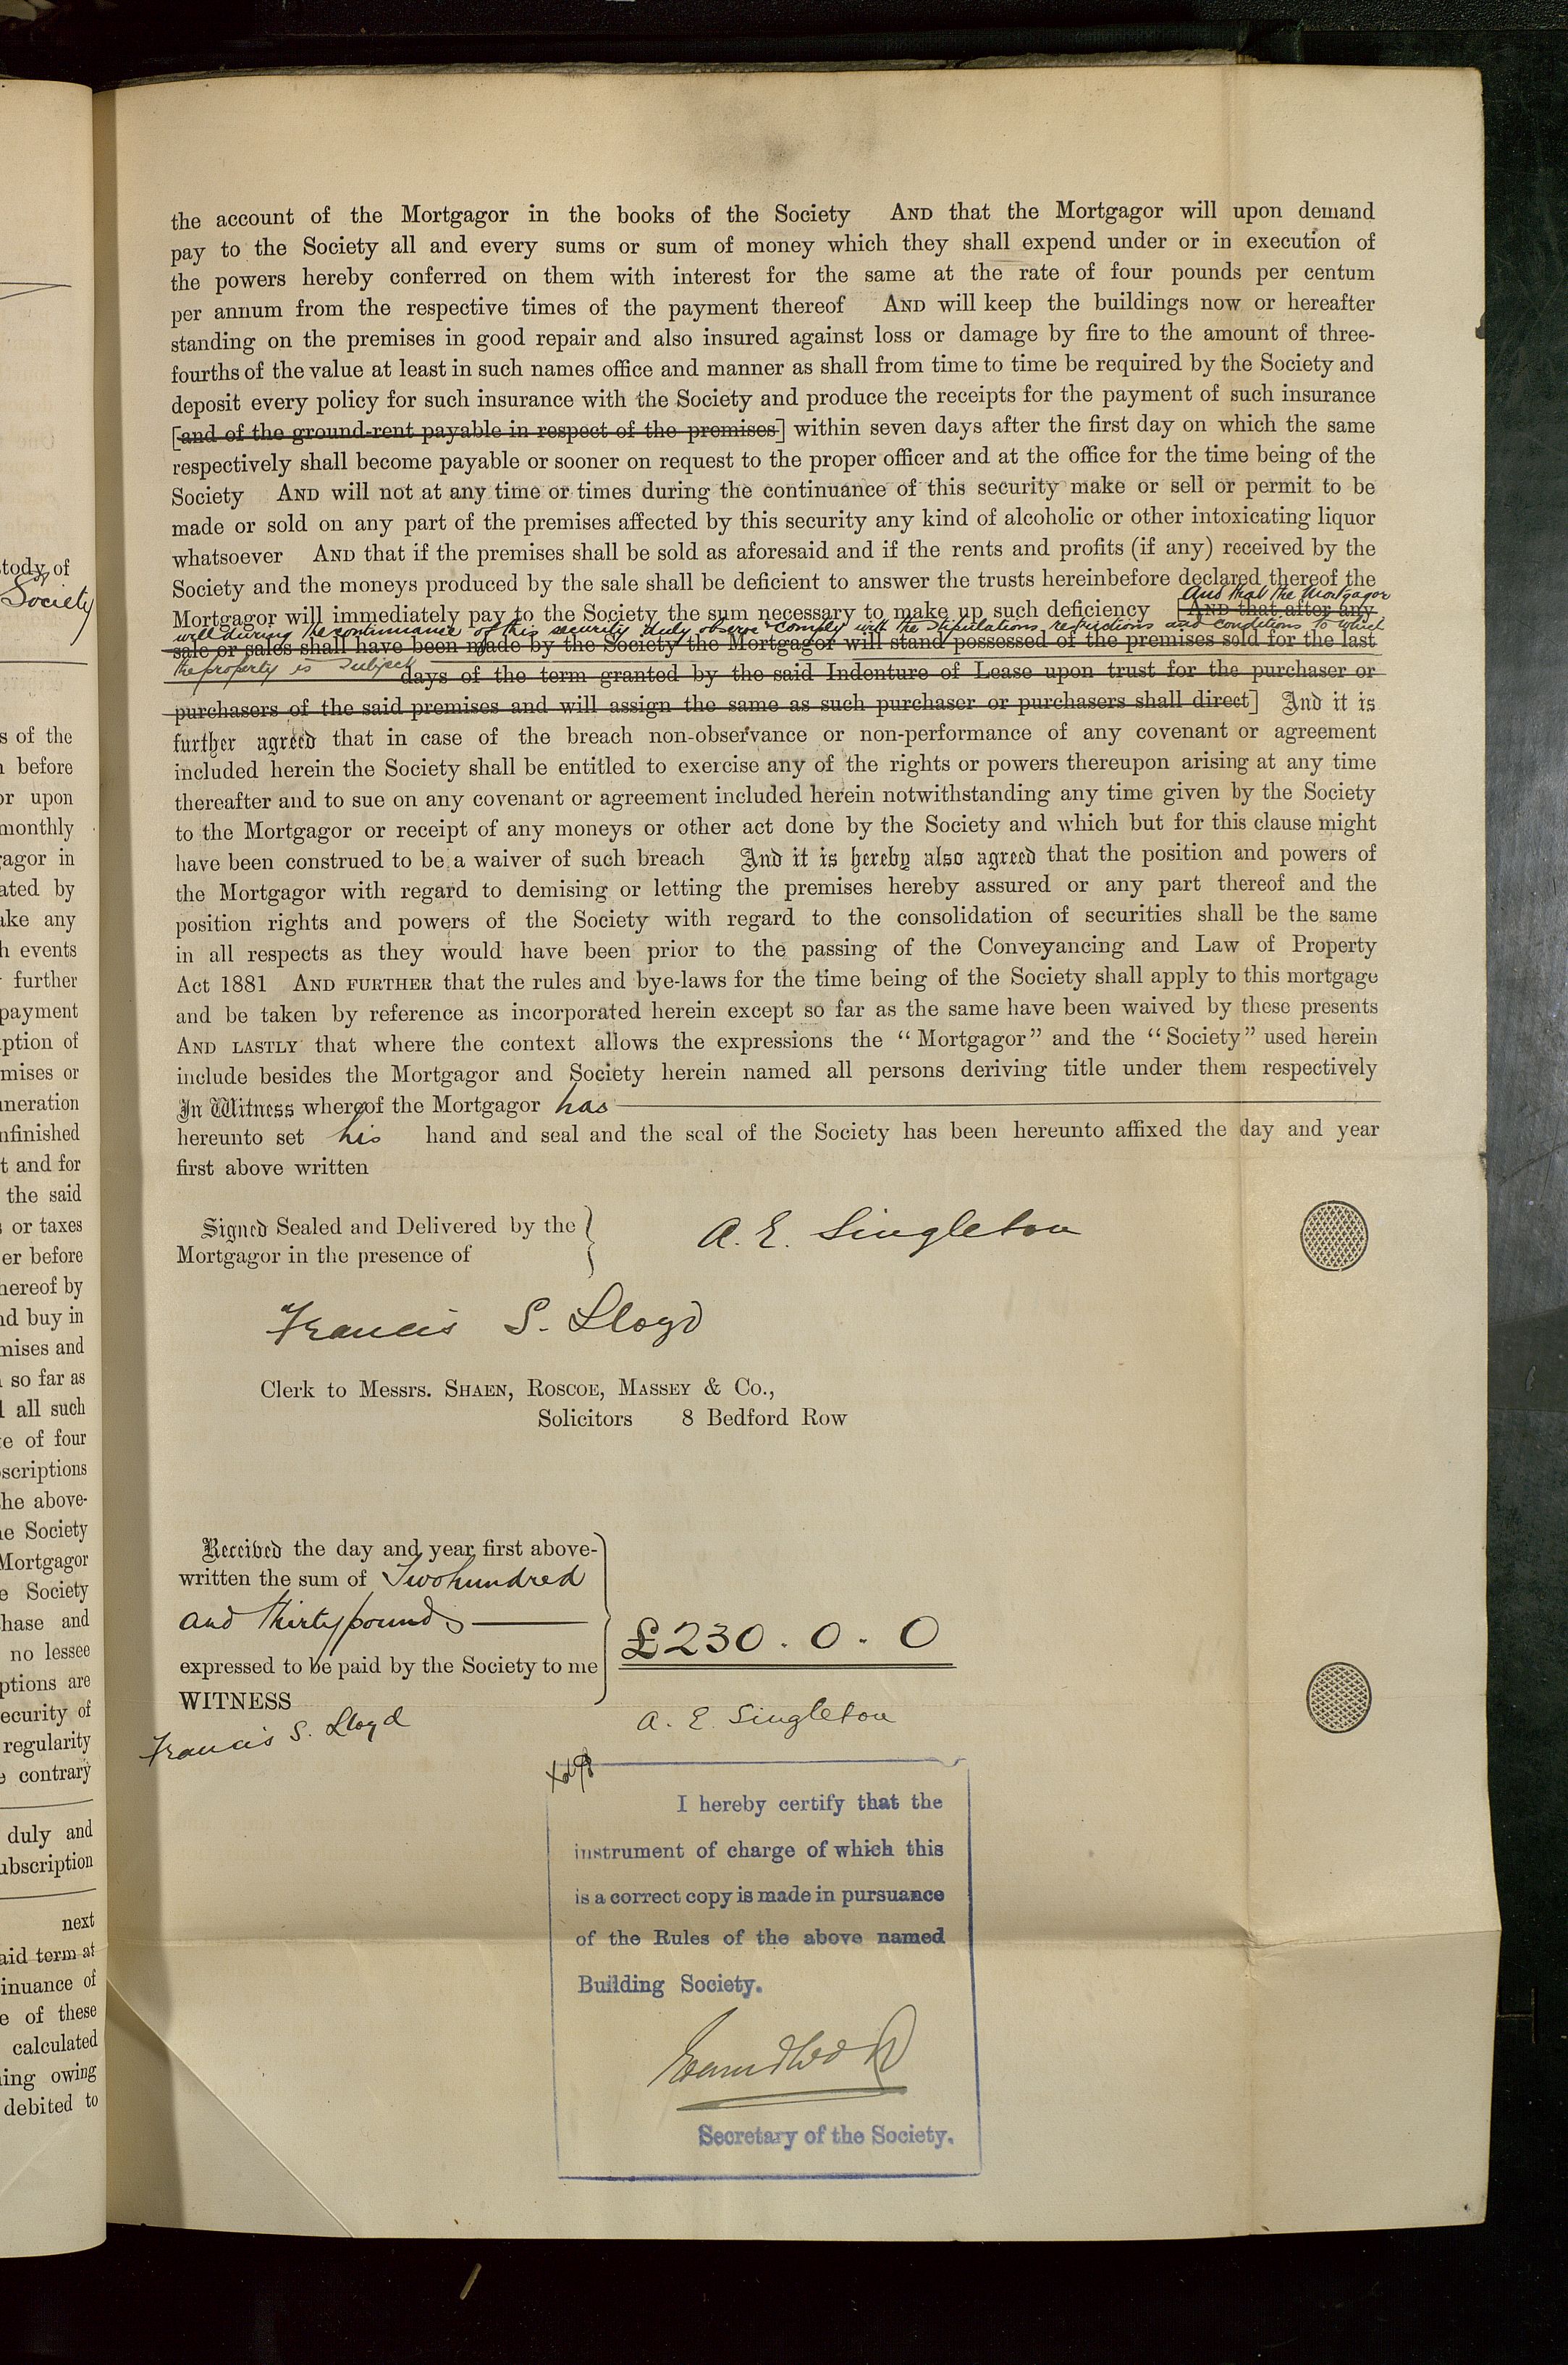 tody of
Society
s of the
n before
or upon
monthly
gagor in
ated by
ake any
h events
further
payment
ption of
mises or
uneration
nfinished
t and for
the said
s or taxes
er before
hereof by
nd buy in
mises and
so far as
l all such
e of four
oscriptions
the above-
he Society
Mortgagor
e Society
hase and
no lessee
ptions are
ecurity of
regularity
e contrary
duly and
ubscription
next
aid term at
inuance of
e of these
calculated
ing owing
debited to
the account of the Mortgagor in the books of the Society AND that the Mortgagor will upon demand
pay to the Society all and every sums or sum of money which they shall expend under or in execution of
the powers hereby conferred on them with interest for the same at the rate of four pounds per centum
per annum from the respective times of the payment thereof AND will keep the buildings now or hereafter
standing on the premises in good repair and also insured against loss or damage by fire to the amount of three-
fourths of the value at least in such names office and manner as shall from time to time be required by the Society and
deposit every policy for such insurance with the Society and produce the receipts for the payment of such insurance
[and of the ground-rent payable in respect of the premises] within seven days after the first day on which the same
respectively shall become payable or sooner on request to the proper officer and at the office for the time being of the
Society AND will not at any time or times during the continuance of this security make or sell or permit to be
made or sold on any part of the premises affected by this security any kind of alcoholic or other intoxicating liquor
whatsoever AND that if the premises shall be sold as aforesaid and if the rents and profits (if any) received by the
Society and the moneys produced by the sale shall be deficient to answer the trusts hereinbefore declared thereof the
And that the Mortgagor
Mortgagor will immediately pay to the Society the sum necessary to make up such deficiency [AND that after any
will during the continuance of this security duly observe & comply with the stipulations restrictions and conditions to which
sale or sales shall have been made by the Society the Mortgagor will stand possessed of the premises sold for the last
the property is subject
days of the term granted by the said Indenture of Lease upon trust for the purchaser or
purchasers of the said premises and will assign the same as such purchaser or purchasers shall direct] And it is
further agreed that in case of the breach non-observance or non-performance of any covenant or agreement
included herein the Society shall be entitled to exercise any of the rights or powers thereupon arising at any time
thereafter and to sue on any covenant or agreement included herein notwithstanding any time given by the Society
to the Mortgagor or receipt of any moneys or other act done by the Society and which but for this clause might
have been construed to be a waiver of such breach And it is hereby also agreed that the position and powers of
the Mortgagor with regard to demising or letting the premises hereby assured or any part thereof and the
position rights and powers of the Society with regard to the consolidation of securities shall be the same
in all respects as they would have been prior to the passing of the Conveyancing and Law of Property
Act 1881 AND FURTHER that the rules and bye-laws for the time being of the Society shall apply to this mortgage
and be taken by reference as incorporated herein except so far as the same have been waived by these presents
AND LASTLY that where the context allows the expressions the "Mortgagor" and the "Society" used herein
include besides the Mortgagor and Society herein named all persons deriving title under them respectively
In Witness whereof the Mortgagor has
hereunto set his hand and seal and the seal of the Society has been hereunto affixed the day and year
first above written
Signed Sealed and Delivered by the
Mortgagor in the presence of
A. E. Singleton
Francis S. Lloyd
Clerk to Messrs. SHAEN, ROSCOE, MASSEY & Co.,
Solicitors 8 Bedford Row
Received the day and year first above-
written the sum of Two hundred
and thirty pounds
£230 . 0 . 0
expressed to be paid by the Society to me
WITNESS
Francis S. Lloyd
A. E. Singleton
I hereby certify that the
instrument of charge of which this
is a correct copy is made in pursuance
of the Rules of the above named
Building Society.
Secretary of the Society.